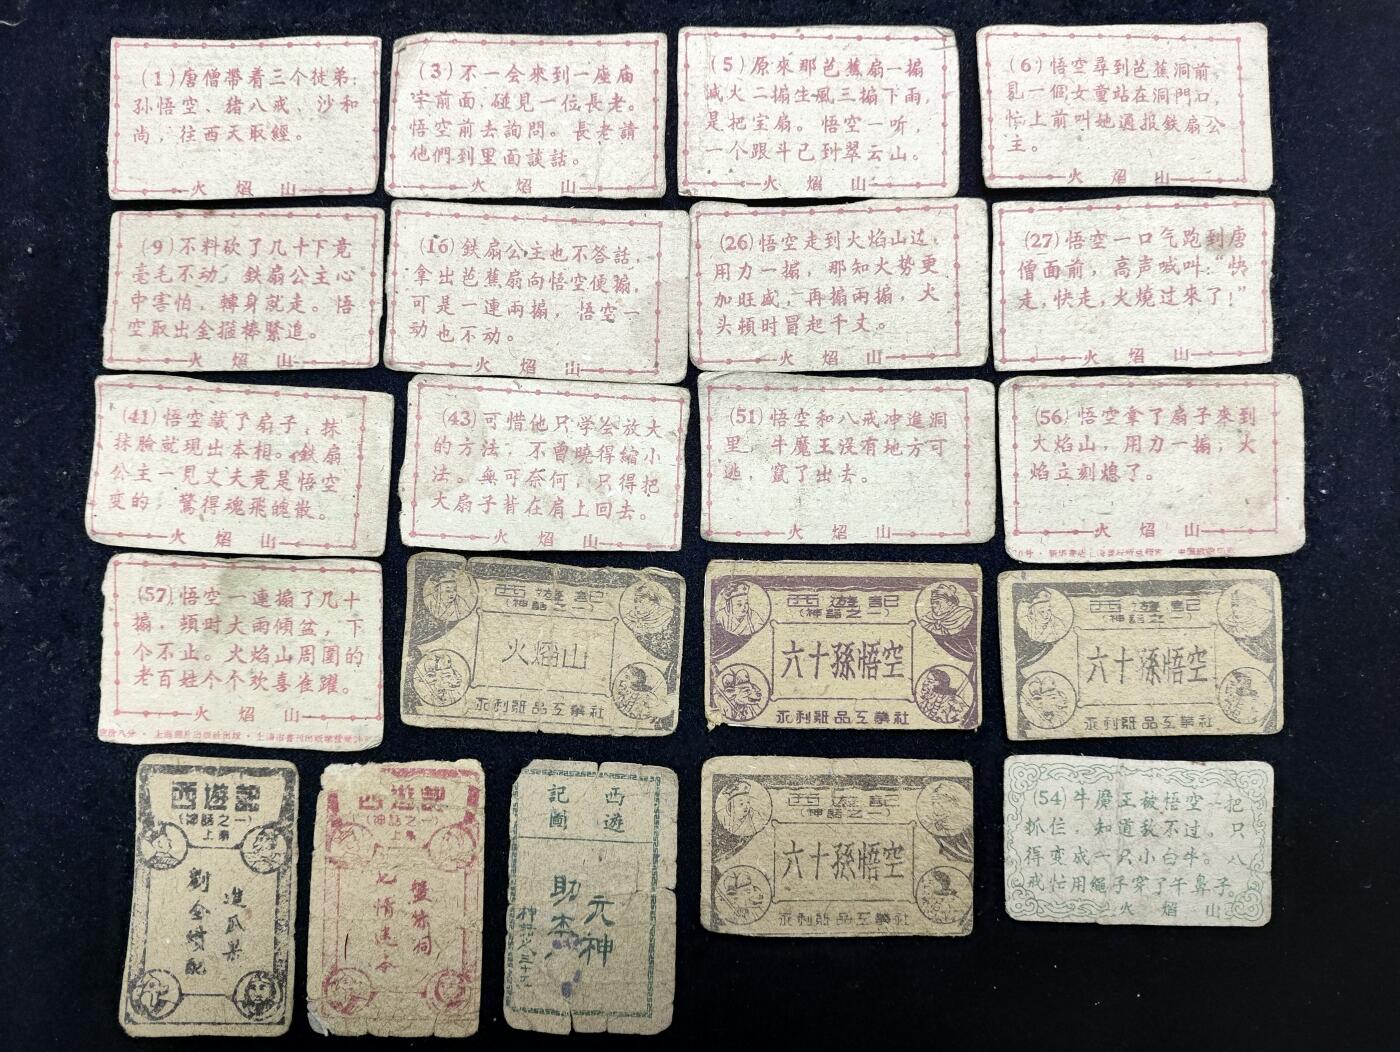 (1)唐僧帶着三个徒弟:
孙悟空、猪八戒、沙和
尚,往西天取經。
火焰山
(3)不一会來到一座庙
宇前面,碰見一位長老。
悟空前去詢問。長老請
他們到里面談話。
火焰山
(5)原來那芭蕉扇一搧
滅火二搧生風三搧下雨,
是把宝扇。悟空一听,
一个跟斗已到翠云山。
火焰山
(6)悟空尋到芭蕉洞前,
見一個女童站在洞門口,
忙上前叫她通报鉄扇公
主。
火焰山
(9)不料砍了几十下竟
毫毛不动,鉄扇公主心
中害怕,轉身就走。悟
空取出金箍棒緊追。
火焰山
(16)鉄扇公主也不答話,
拿出芭蕉扇向悟空便搧,
可是一連兩搧,悟空一
动也不动。
火焰山
(26)悟空走到火焰山边,
用力一搧,那知火势更
加旺盛,再搧兩搧,火
头頓时冒起千丈。
火焰山
(27)悟空一口气跑到唐
僧面前,高声喊叫:“快
走,快走,火燒过來了!”
火焰山
(41)悟空藏了扇子,抹
抹臉就現出本相。鉄扇
公主一見丈夫竟是悟空
变的,驚得魂飛魄散。
火焰山
(43)可惜他只学会放大
的方法,不曾曉得縮小
法。無可奈何,只得把
大扇子背在肩上回去。
火焰山
(51)悟空和八戒冲進洞
里,牛魔王沒有地方可
逃,竄了出去。
火焰山
(56)悟空拿了扇子來到
火焰山,用力一搧,火
焰立刻熄了。
火焰山
(57)悟空一連搧了几十
搧,頓时大雨傾盆,下
个不止。火焰山周圍的
老百姓个个欢喜雀躍。
火焰山
西遊記
(神話之一)
火焰山
永利紙品工業社
西遊記
(神話之一)
六十孫悟空
永利紙品工業社
西遊記
(神話之一)
六十孫悟空
永利紙品工業社
西遊記
(神話之一)
上集
進瓜果
劉全續配
西遊記
(神話之一)
上集
盤絲洞
七情迷本
西遊
記圖
元神
助本
西遊記
(神話之一)
六十孫悟空
永利紙品工業社
(54)牛魔王被悟空一把
抓住,知道敌不过。只
得变成一只小白牛。八
戒忙用繩子穿了牛鼻子。
火焰山